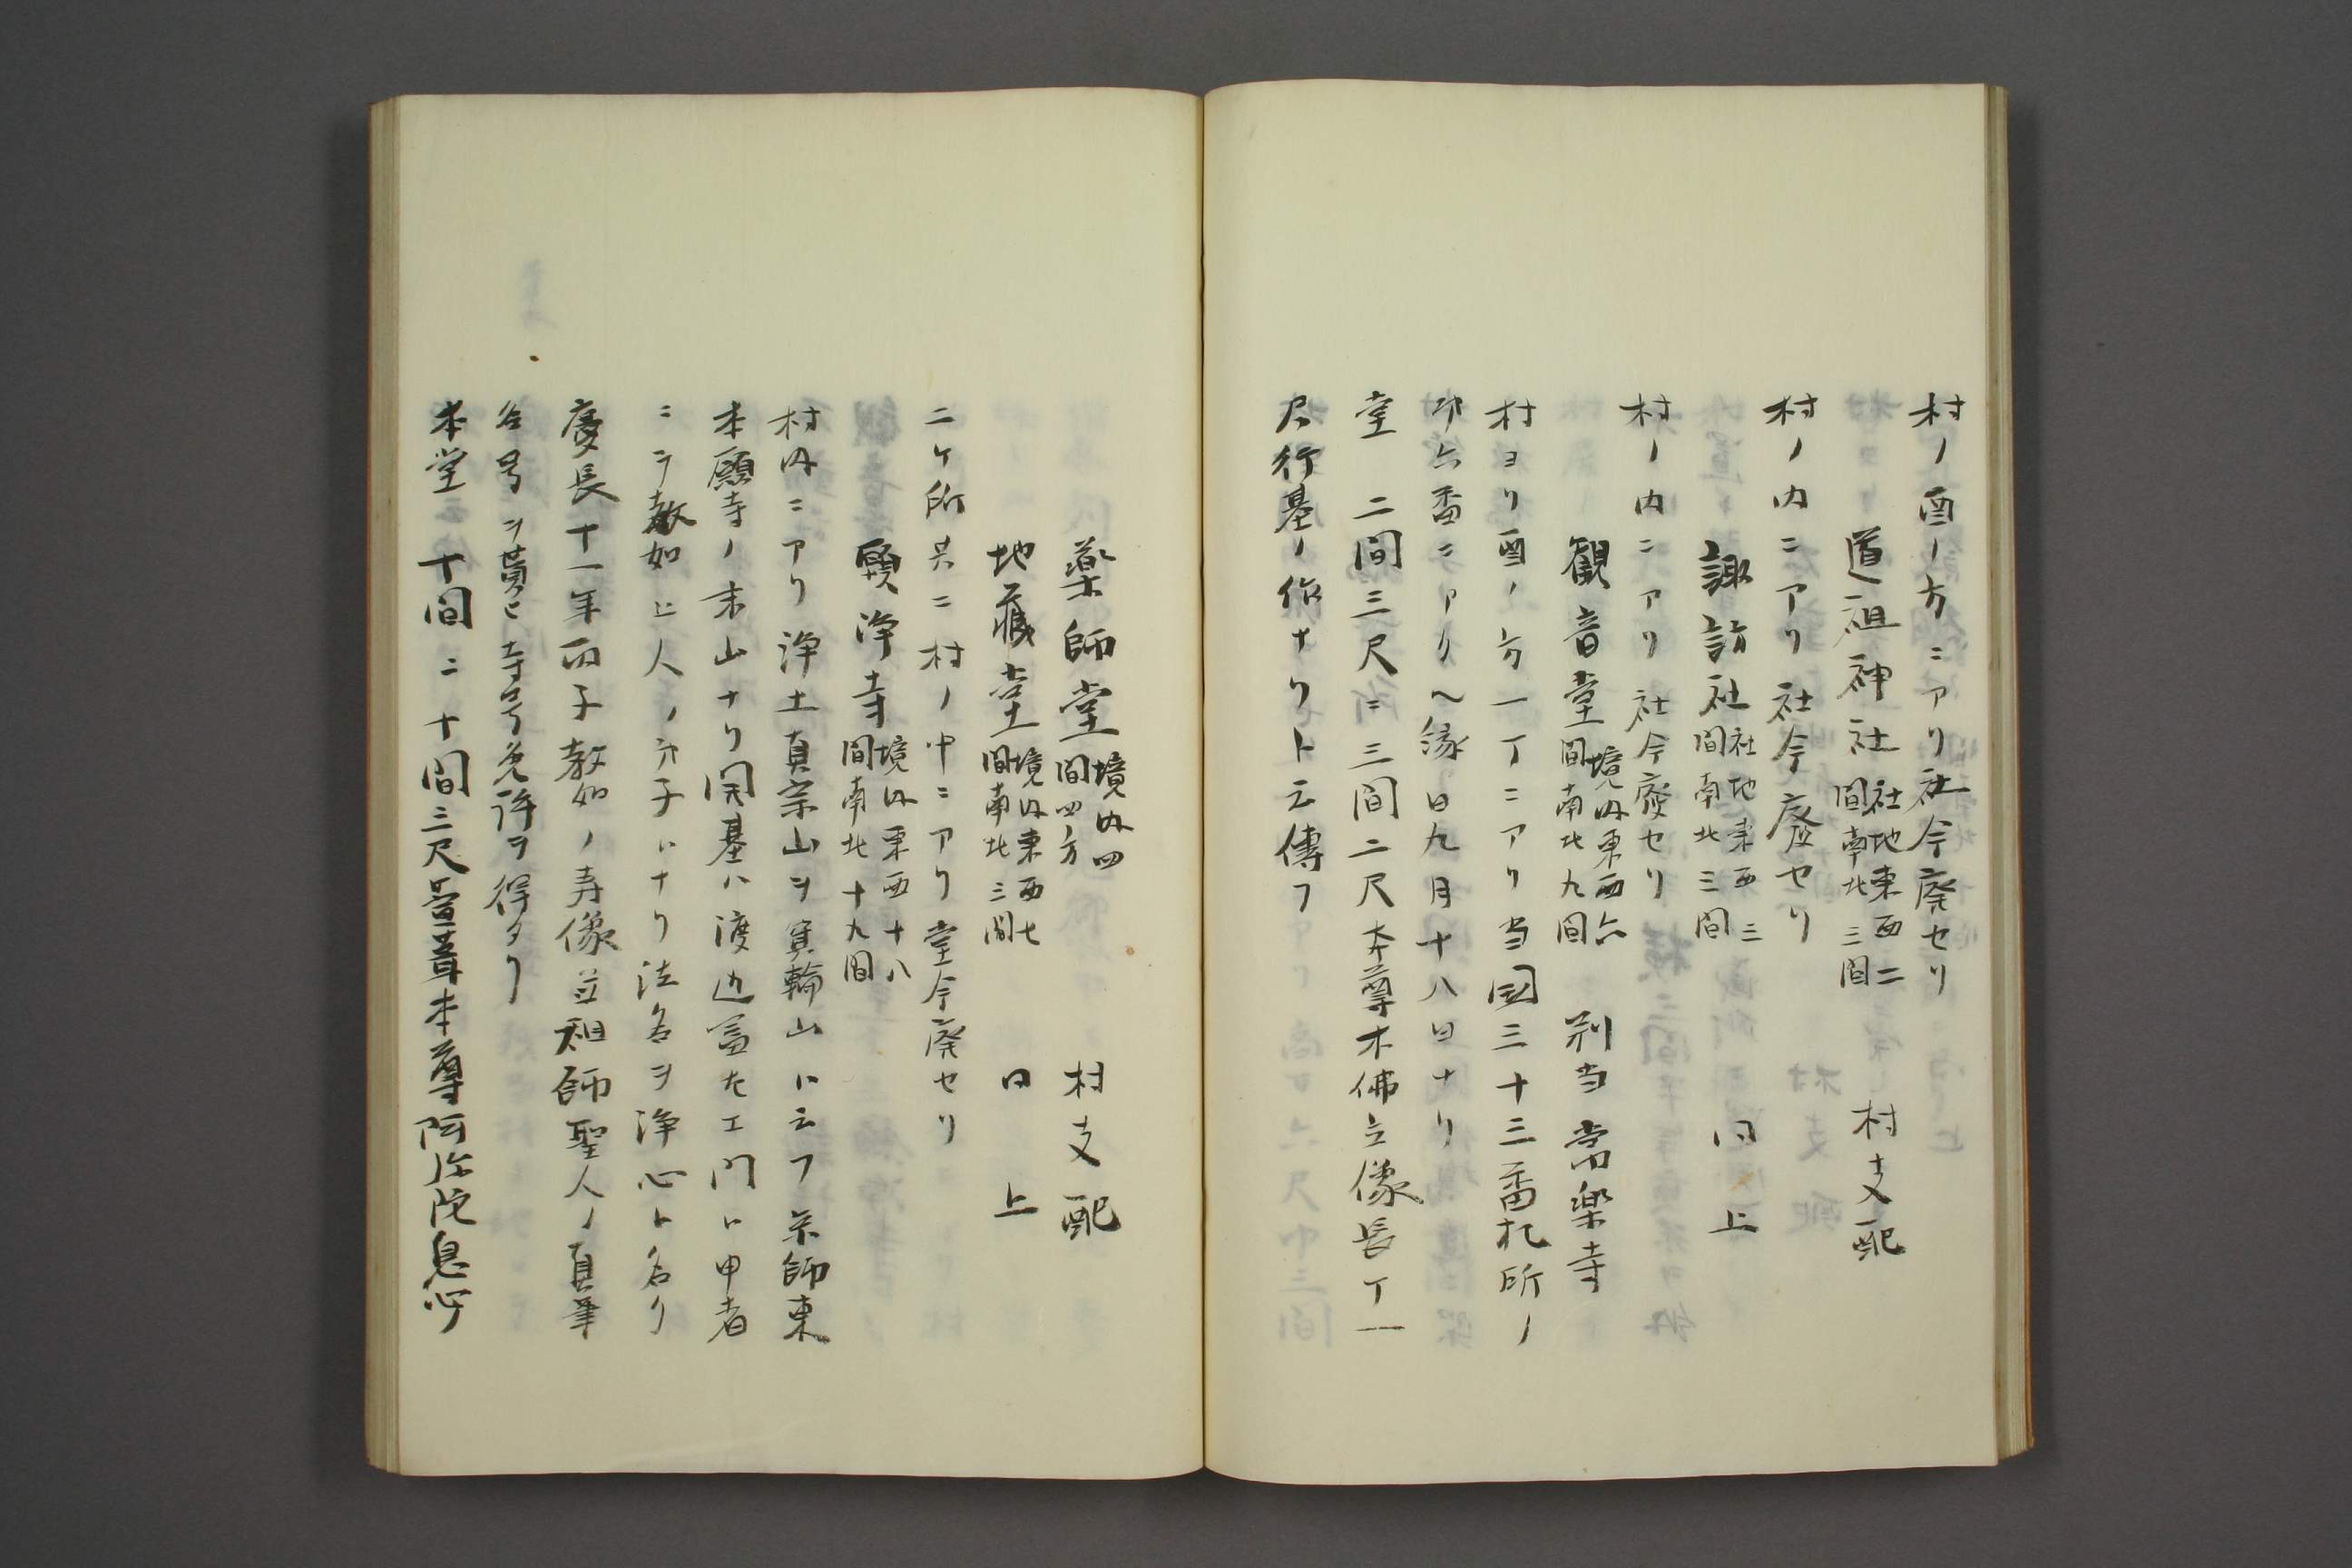 村ノ酉ノ方ニアリ社今廃セリ
道祖神社 社地東西二間南北三間 村支配
村ノ内ニアリ社今廃セリ
諏訪社 社地東西三間南北三間 同上
村ノ内ニアリ社今廃セリ
観音堂 境内東西六間南北九間 別当 常楽寺
村ヨリ酉ノ方一丁ニアリ当国三十三番札所ノ
第六番ニテアリ縁日九月十八日ナリ
堂 二間三尺ニ三間二尺本尊木佛立像長丁一
尺行基ノ作ナリト云傳フ
薬師堂 境内四間四方 村支配
地蔵堂 境内東西七間南北三間 同上
二ケ所共ニ村ノ中ニアリ堂今廃セリ
願浄寺 境内東西十八間南北十九間
村内ニアリ浄土真宗山ヲ寶輪山ト云フ京師東
本願寺ノ末山ナリ開基ハ渡辺左エ門ト申者
ニテ教如上人ノ弟子トナリ法名ヲ浄心ト名リ
慶長十一年丙子教如ノ寿像並祖師聖人ノ真筆
名号ヲ貰ヒ寺号免許ヲ得タリ
本堂 十間ニ十間三尺萱葺本尊阿弥陀恵心